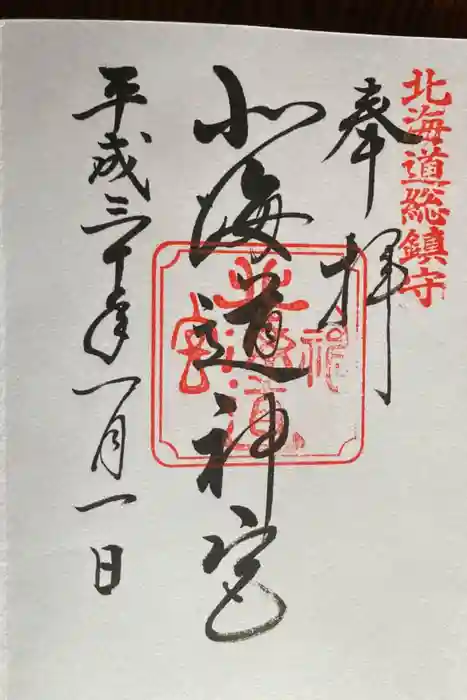 北海道総鎮守
奉拝
北海道神宮
平成三十年一月一日
北海道神宮